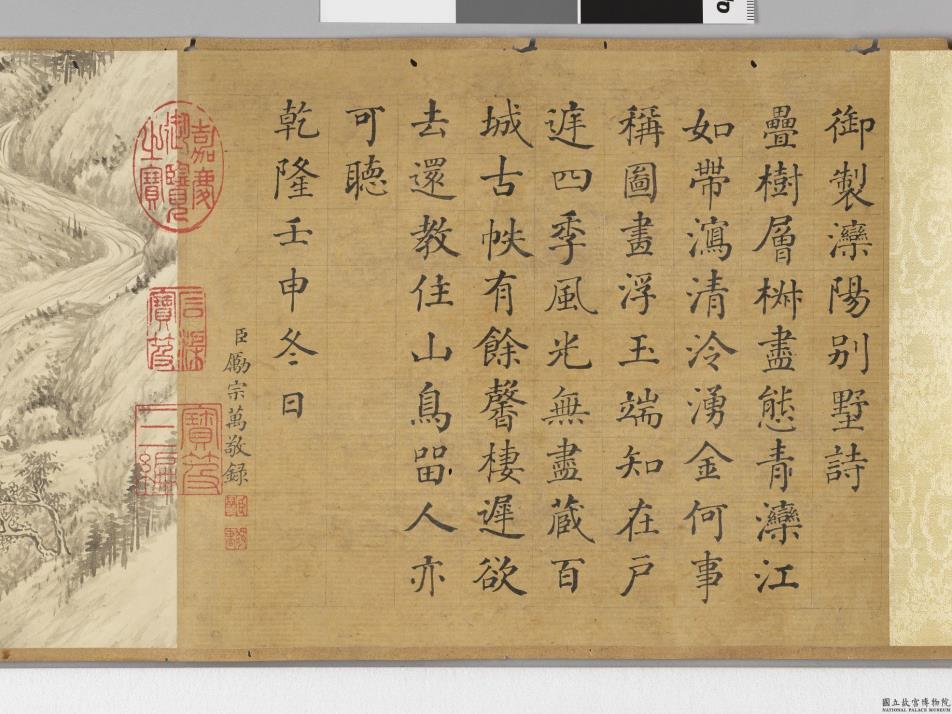 御製灤陽别墅詩
疊樹層椕盡態青灤江
如帶瀉清泠湧金何事
稱圖畫浮玉端知在戶
遅四季風光無盡蔵百
城古帙有餘馨棲遲欲
去還教住山鳥留人亦
可聴
乾隆壬申冬日
臣勵宗萬敬録
嘉慶御覽之寶
石渠寶笈
寶笈三編
國立故宮博物院
NATIONAL PALACE MUSEUM